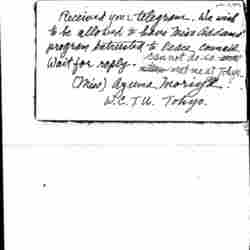 Received your telegram. We wish
to be allowed to have Miss Addams'
program entrusted to Peace council.
Wait for reply. cannot do so
met me at Tokyo
(Miss) Azuma Moriya
W.C.T.U. Tokyo.